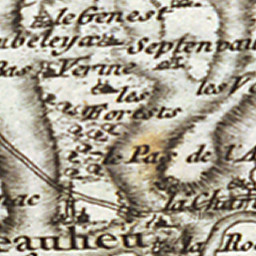 le Genest
ubeleyæ
Septenpau
Bas Verme
les Ve
les
Forests
le Pas de l'A
la Cham
nac
eaulieu
la Ro